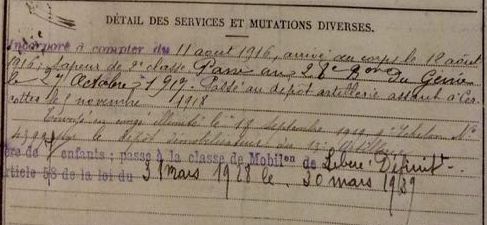 DÉTAIL DES SERVICES ET MUTATIONS DIVERSES.
Incorporé à compter du 11 août 1916, arrivé au corps le 12 août
1916, Sapeur de 2e classe Passé au 28e du Génie
le 27 Octobre 1917. Passé au dépôt artillerie assaut à Cer
cottes le novembre 1918
Envoyé en congé illimité le 18 septembre 1919 Echelon No
4399 par le dépôt démobilisateur du 13e Artillerie
ère de 7 enfants : passe à la classe de Mobilon de Libéré Définit.
rticle 58 de la loi du 31 mars 1928 le 30 mars 1939